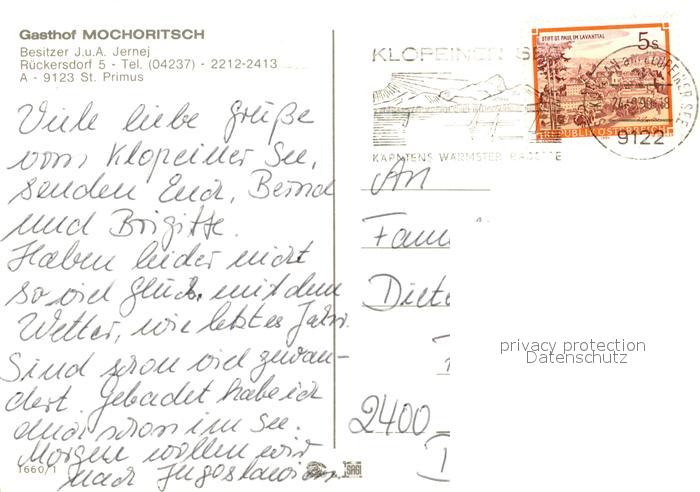 Gasthof MOCHORITSCH
Besitzer J.u.A. Jernej
Rückersdorf 5 - Tel. (04237) - 2212-2413
A - 9123 St. Primus
Viele liebe Grüße
vom Klopeiner See,
senden Euch, Bernd
und Brigitte.
Haben leider nicht
so viel Glück, mit dem
Wetter, wie letztes Jahr.
Sind schon viel gewan-
dert. Gebadet habe ich
auch schon im See.
Morgen wollen wir
nach Jugoslawien.
1660/1
KLOPEINER S
KÄRNTENS WÄRMSTER BADESEE
STIFT ST. PAUL IM LAVANTTAL
5s
REPUBLIK ÖSTERREICH
KLOPEINER SEE
9122
An
Fami
Diete
2400
privacy protection
Datenschutz